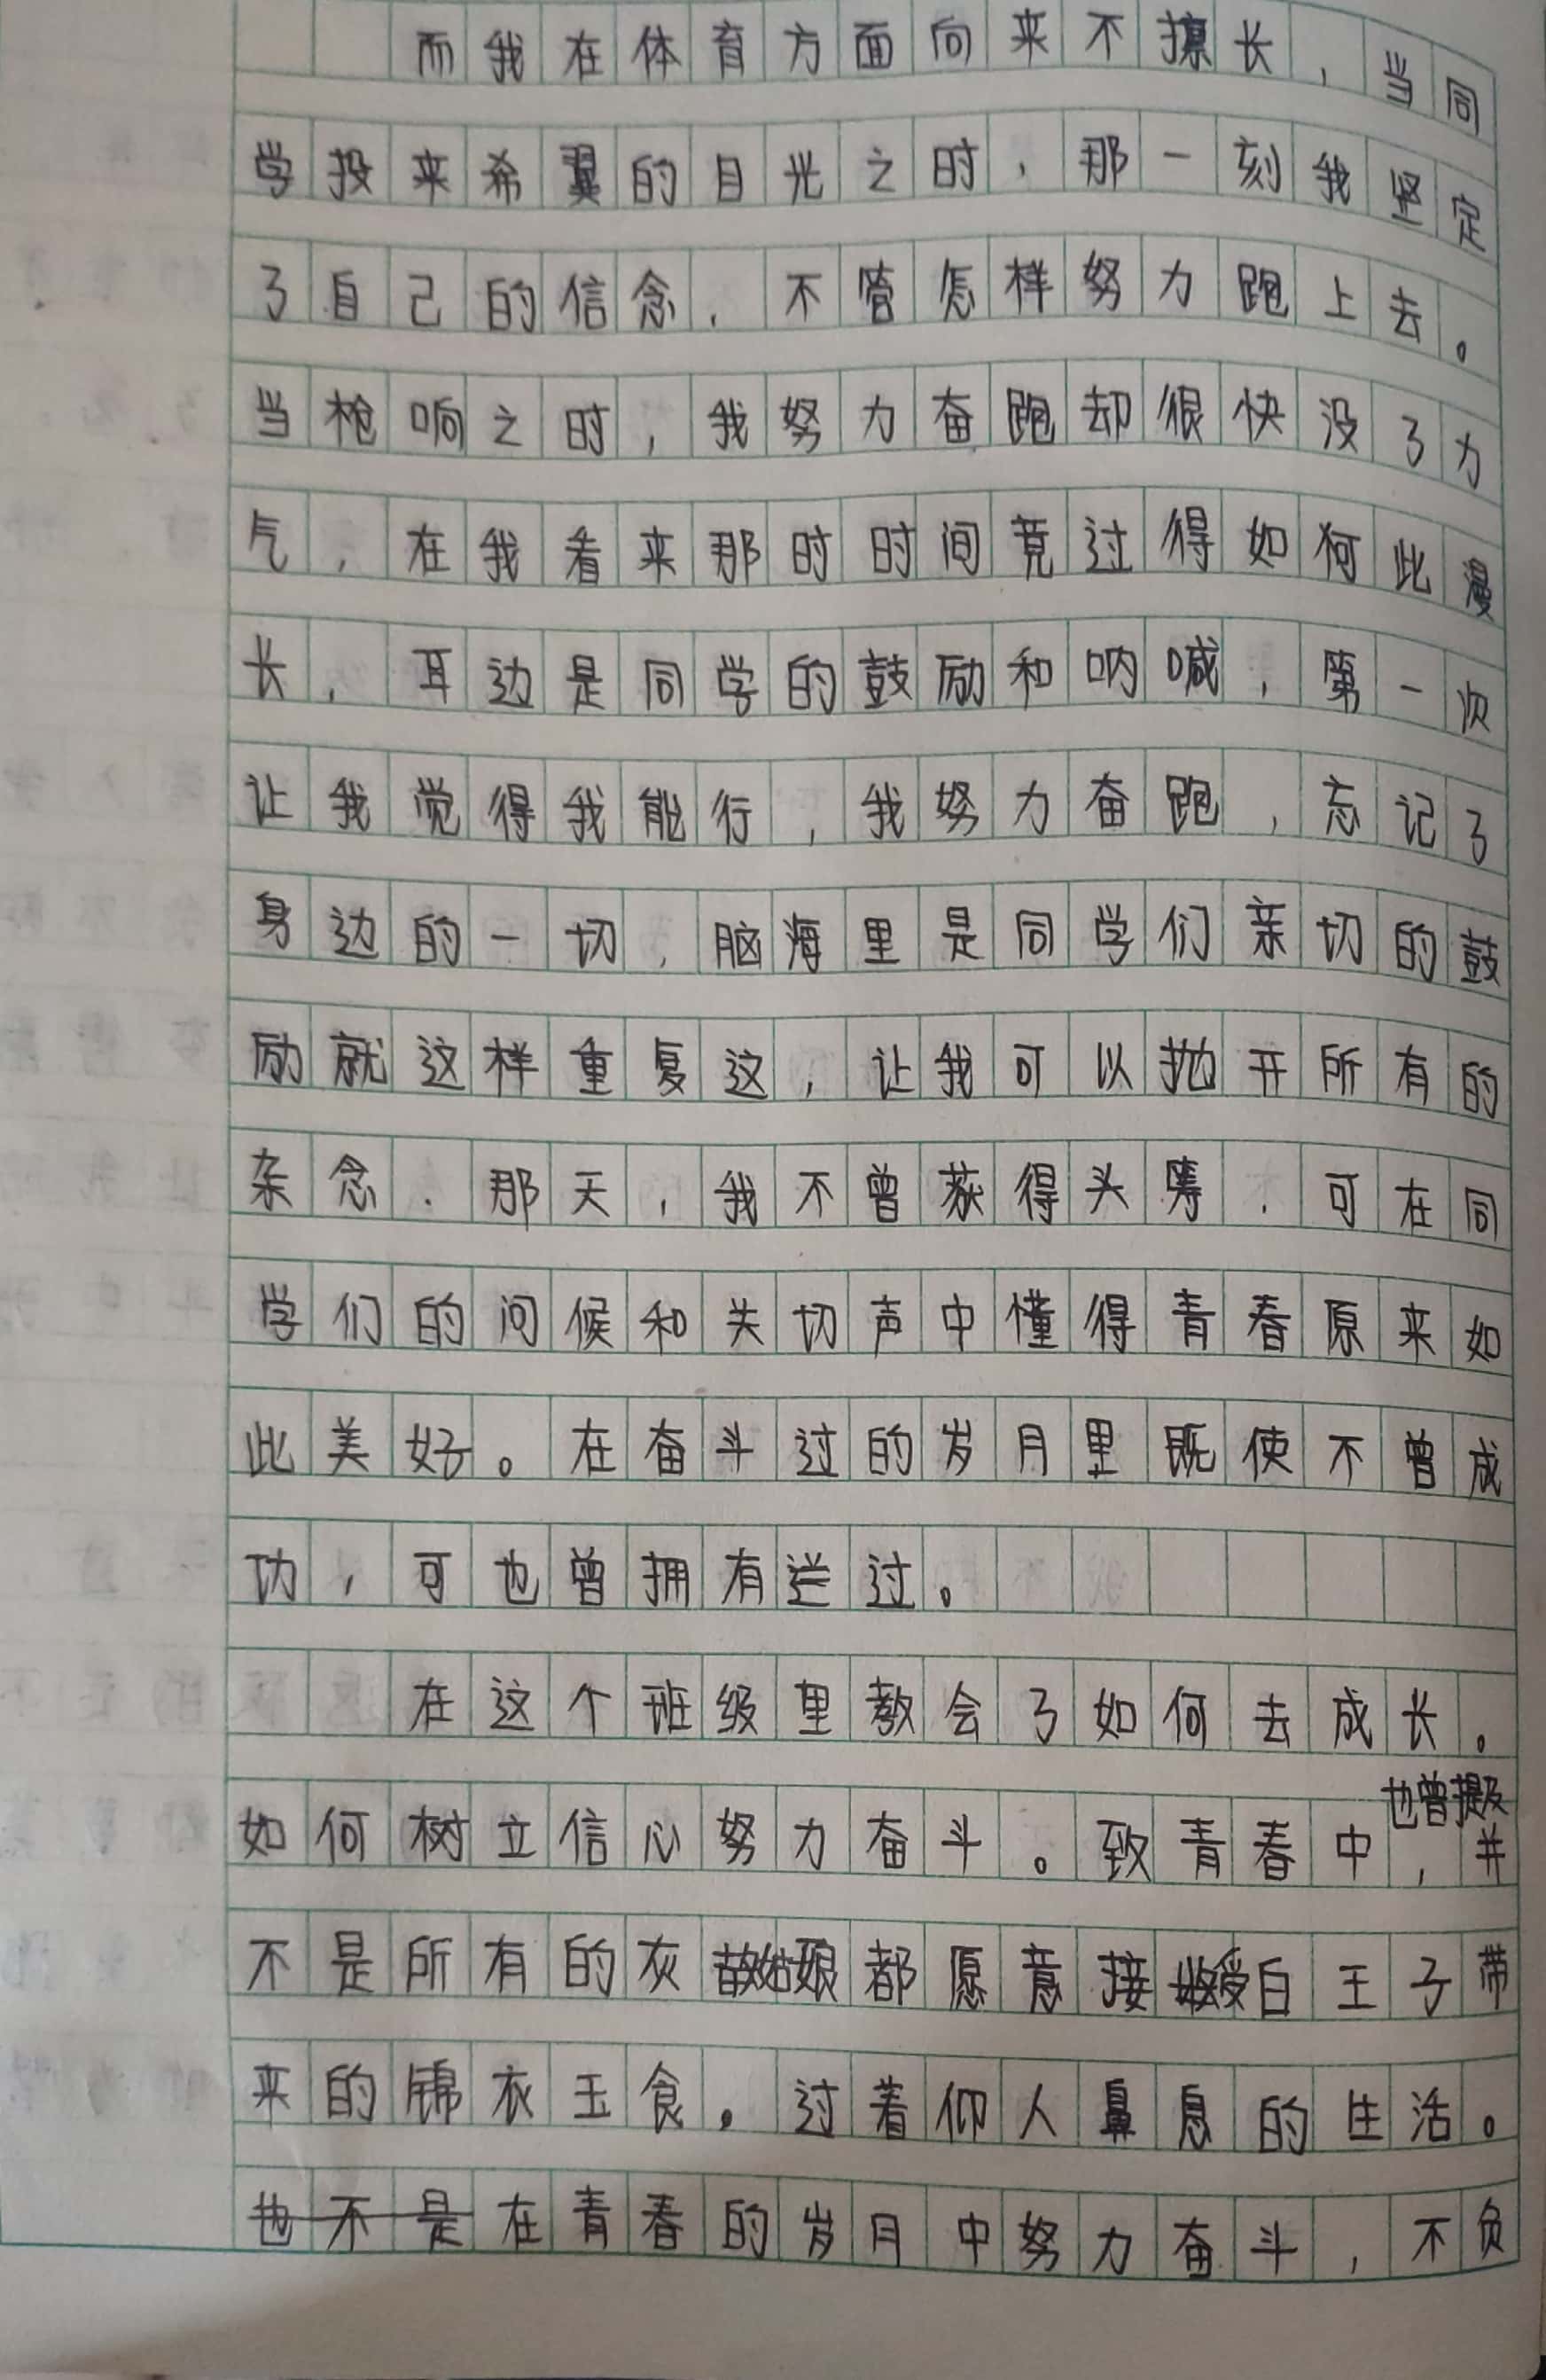 而我在体育方面向来不擅长，当同
学投来希翼的目光之时，那一刻我坚定
了自己的信念，不管怎样努力跑上去。
当枪响之时，我努力奋跑却很快没了力
气，在我看来那时时间竟过得如何此漫
长，耳边是同学的鼓励和呐喊，第一次
让我觉得我能行，我努力奋跑，忘记了
身边的一切，脑海里是同学们亲切的鼓
励就这样重复这，让我可以抛开所有的
杂念．那天，我不曾获得头筹．可在同
学们的问候和关切声中懂得青春原来如
此美好。在奋斗过的岁月里既使不曾成
功，可也曾拥有过。
在这个班级里教会了如何去成长。
如何树立信心努力奋斗。致青春中也曾提及，并
不是所有的灰姑娘都愿意接受白王子带
来的锦衣玉食。过着仰人鼻息的生活。
也不是在青春的岁月中努力奋斗，不负